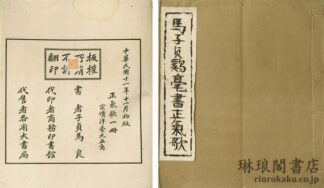 中華民國十一年十一月初版
正氣歌一冊
定價洋壹元五角
板權所有
不許翻印
書者子貞馬良
代印者商務印書館
代售者各省大書局
馬子貞鷄毫書正氣歌
琳琅閣書店
rinrokaku.co.jp